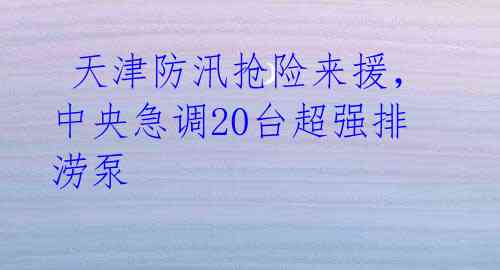 天津防汛抢险来援，
中央急调20台超强排
涝泵